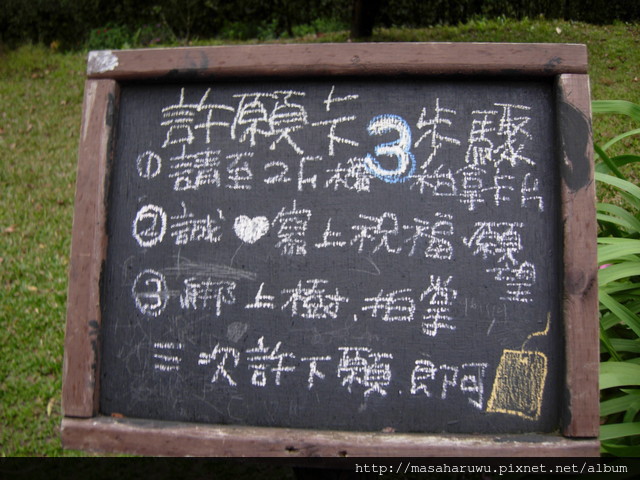 許願卡3步驟
①請至2F櫃枱拿卡片
②誠♥寫上祝福願望
③綁上樹,拍掌
三次許下願,即可
http://masaharuwu.pixnet.net/album